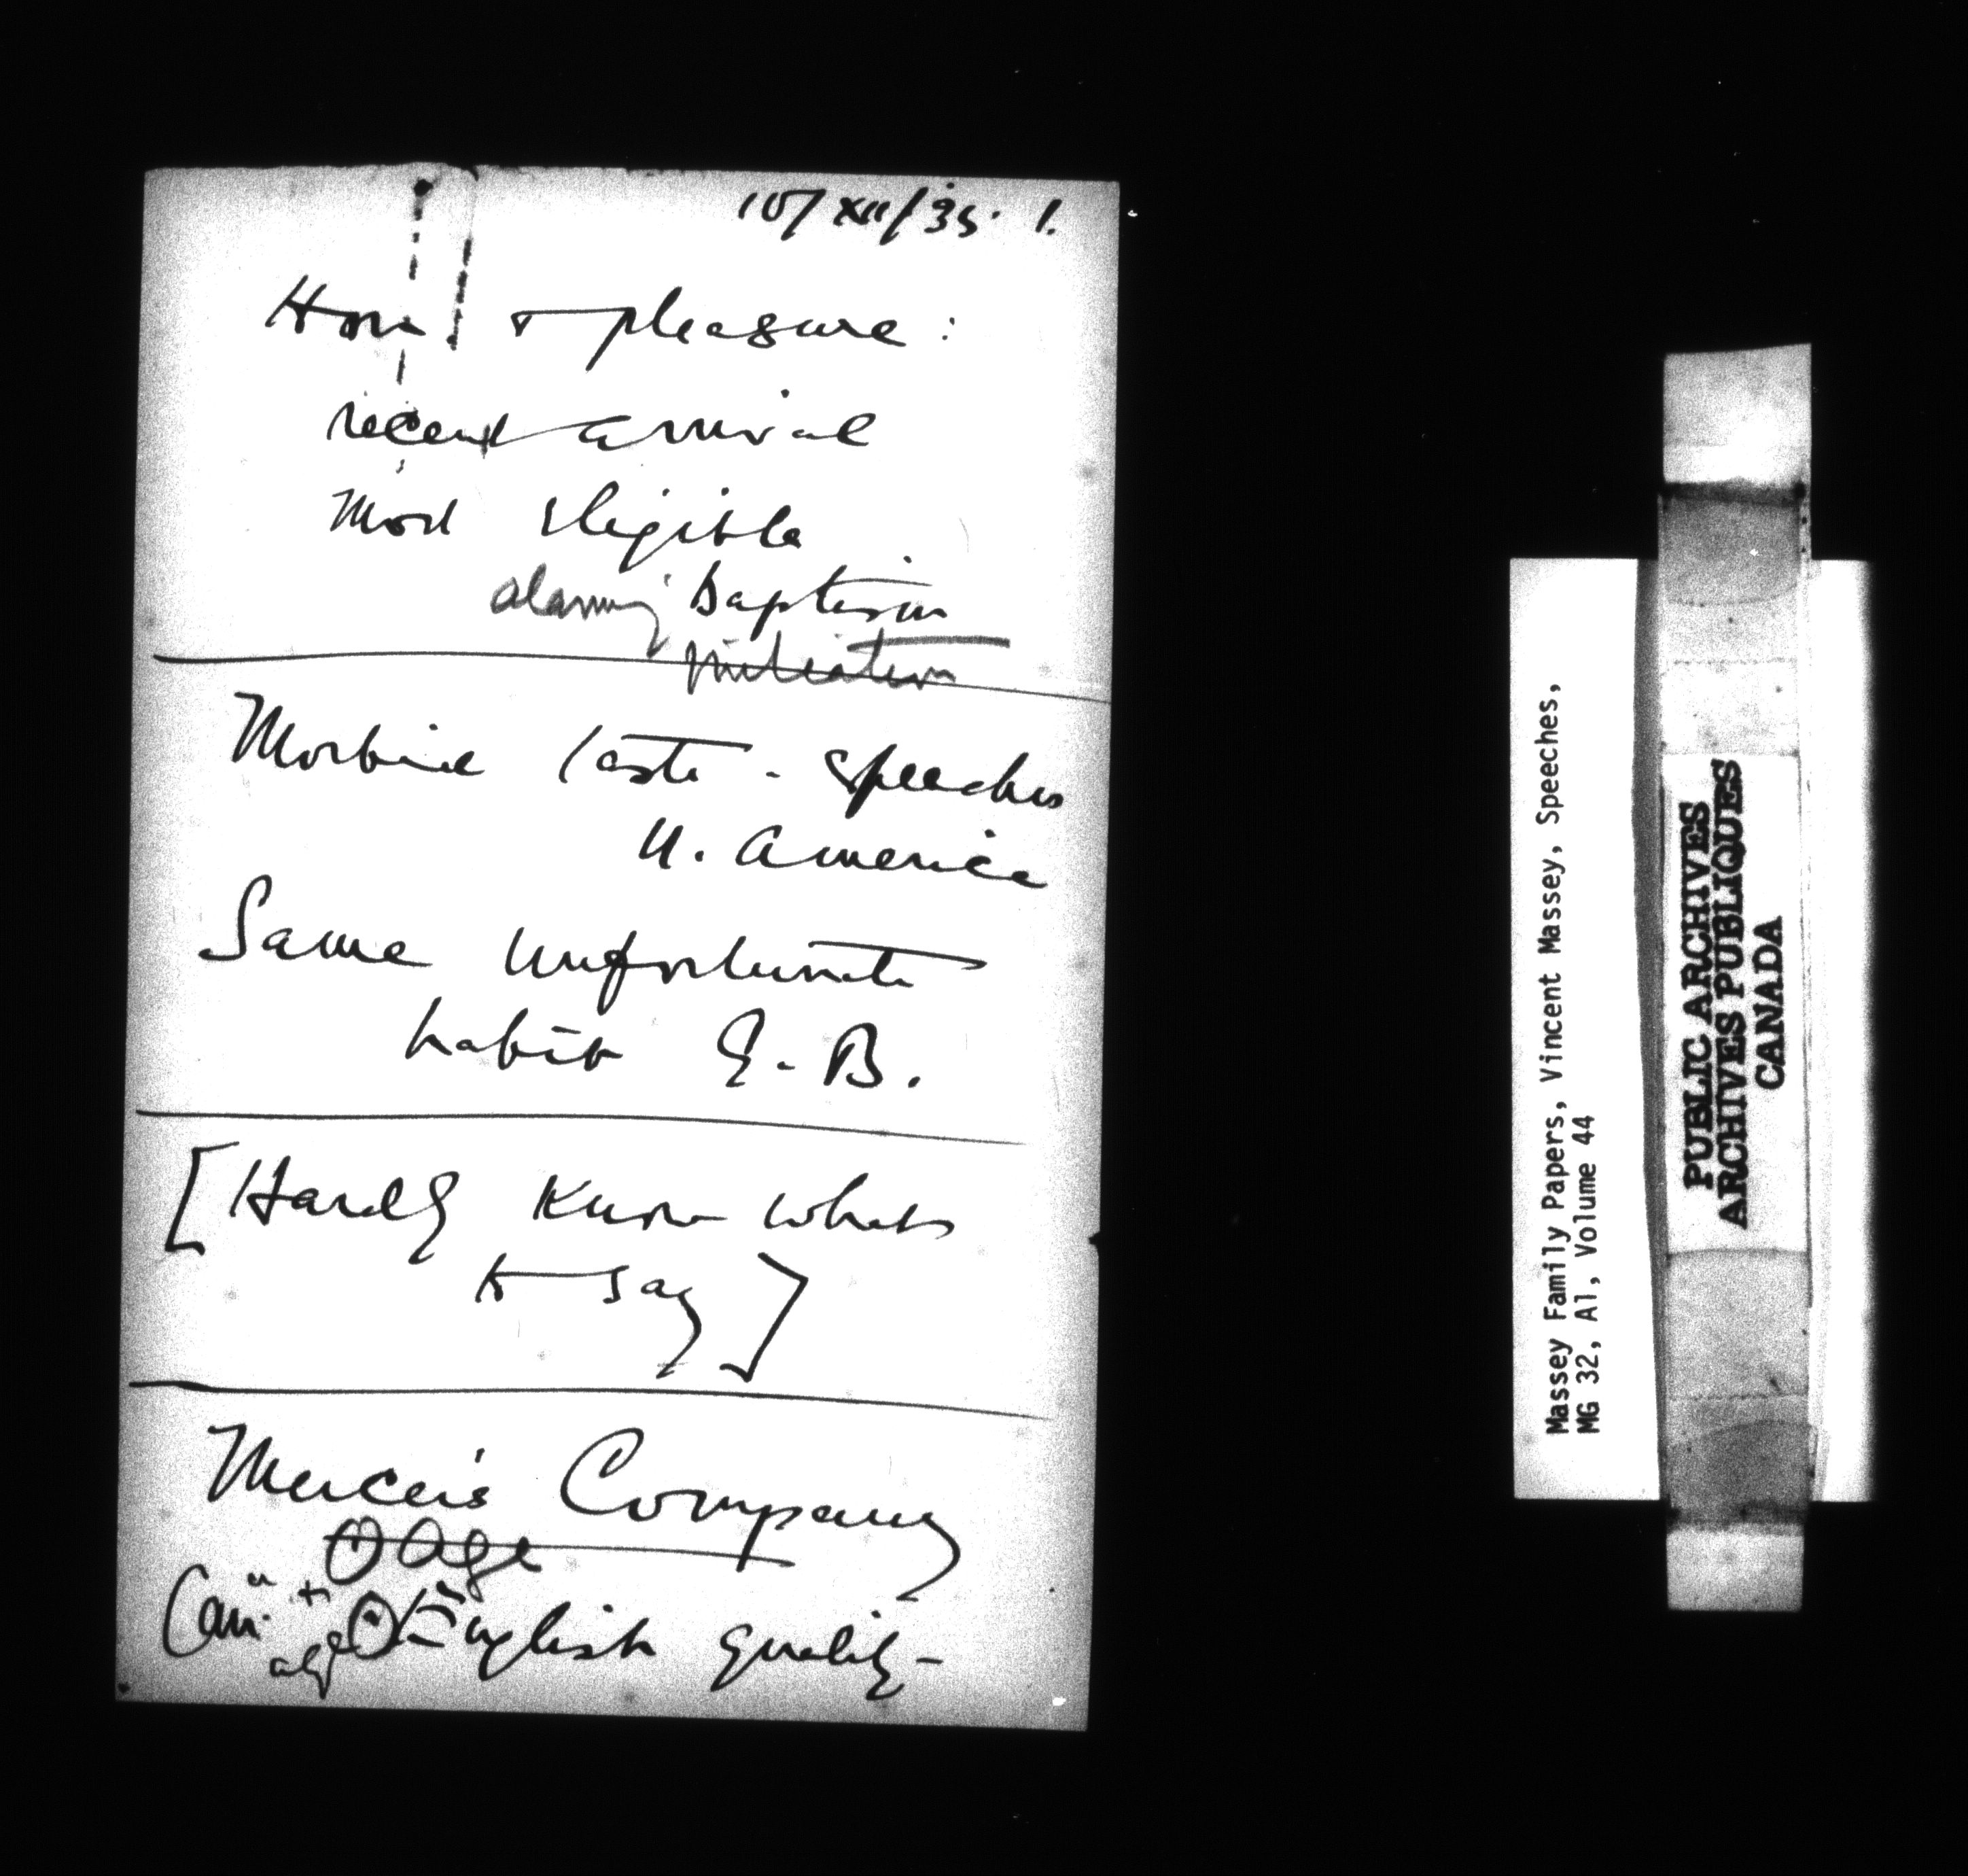 10/XII/35. 1.
Hon & pleasure:
recent arrival
Most eligible
alarming baptism
initiation
Morbid taste - speeches
N. America
Same unfortunate
habit G.B.
[Hardly know what
to say]
Mercer's Company
① Age
Can
+
age
English quality -
Massey Family Papers, Vincent Massey, Speeches,
MG 32, A1, Volume 44
PUBLIC ARCHIVES
ARCHIVES PUBLIQUES
CANADA